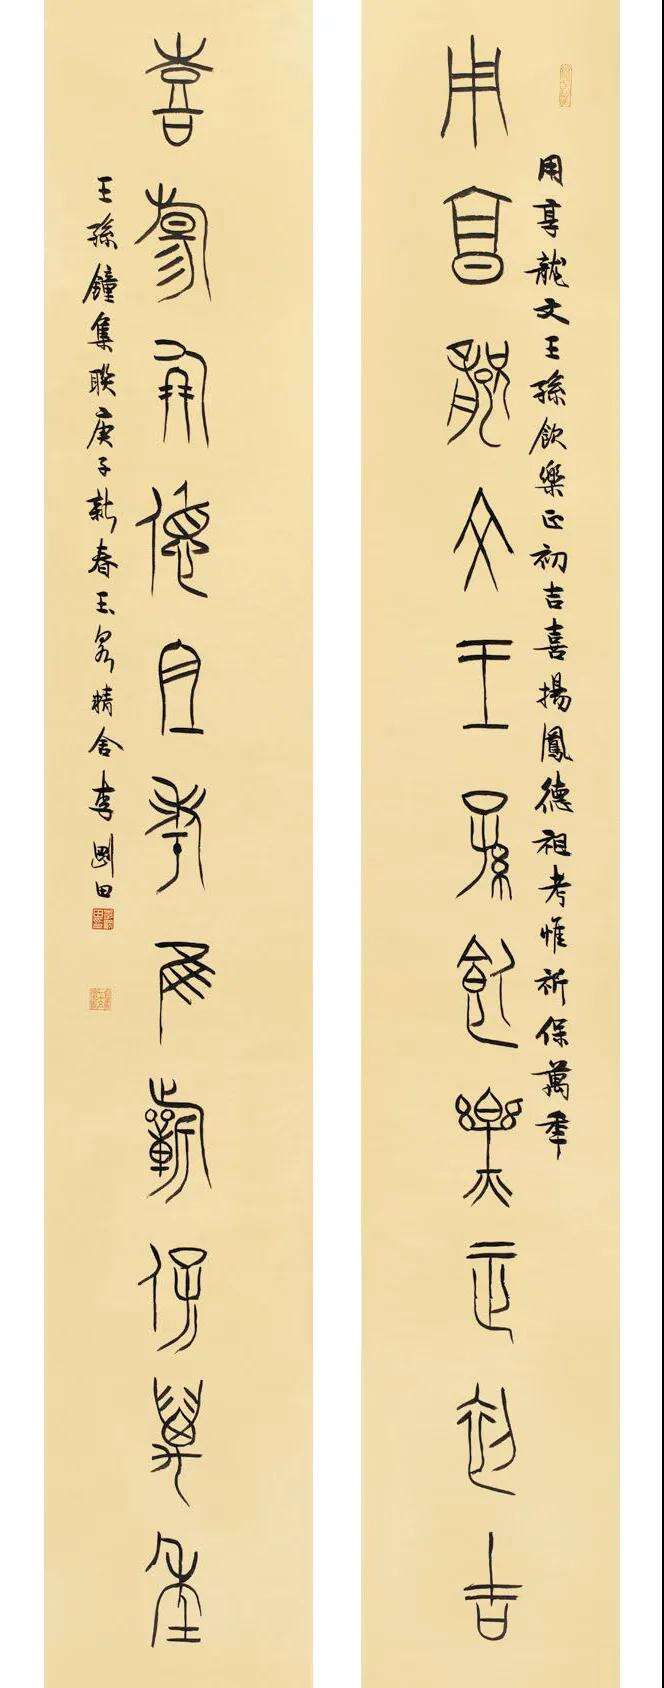 用享龍文王孫飲樂正初吉喜揚鳳德祖考惟祈保萬年
用享龍文王孫飲樂正初吉
喜揚鳳德祖考惟祈保萬年
王孫鐘集聯庚子新春玉泉精舍李剛田